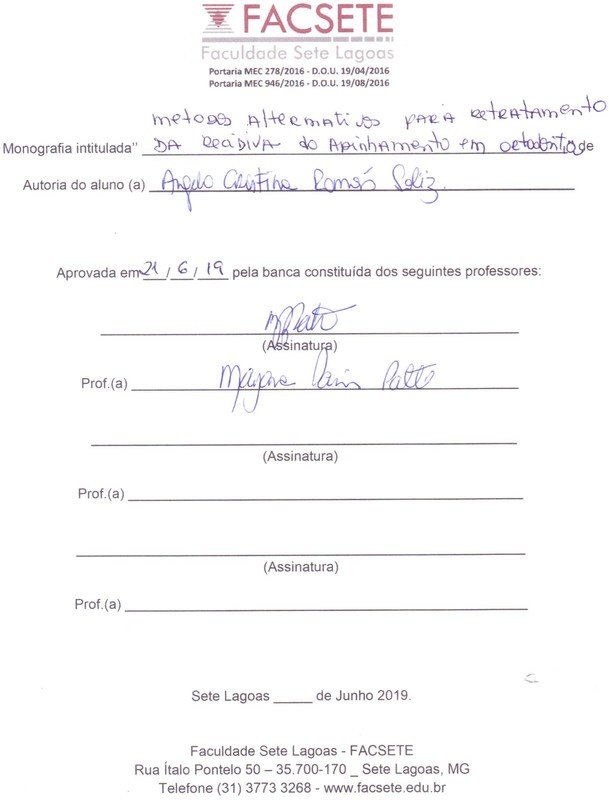 FACSETE
Faculdade Sete Lagoas
Portaria MEC 278/2016 - D.O.U. 19/04/2016
Portaria MEC 946/2016 - D.O.U. 19/08/2016
metodos Alternativos PARA RETRATAMENTO
Monografia intitulada" DA Recidiva do Apinhamento em ortodontia de
Autoria do aluno (a) Angela Cristina Ramos Soliz
Aprovada em 21 / 6 / 19 pela banca constituída dos seguintes professores:
(Assinatura)
Prof.(a) Patto
(Assinatura)
Prof.(a)
(Assinatura)
Prof.(a)
Sete Lagoas _____ de Junho 2019.
Faculdade Sete Lagoas - FACSETE
Rua Ítalo Pontelo 50 – 35.700-170 _ Sete Lagoas, MG
Telefone (31) 3773 3268 - www.facsete.edu.br